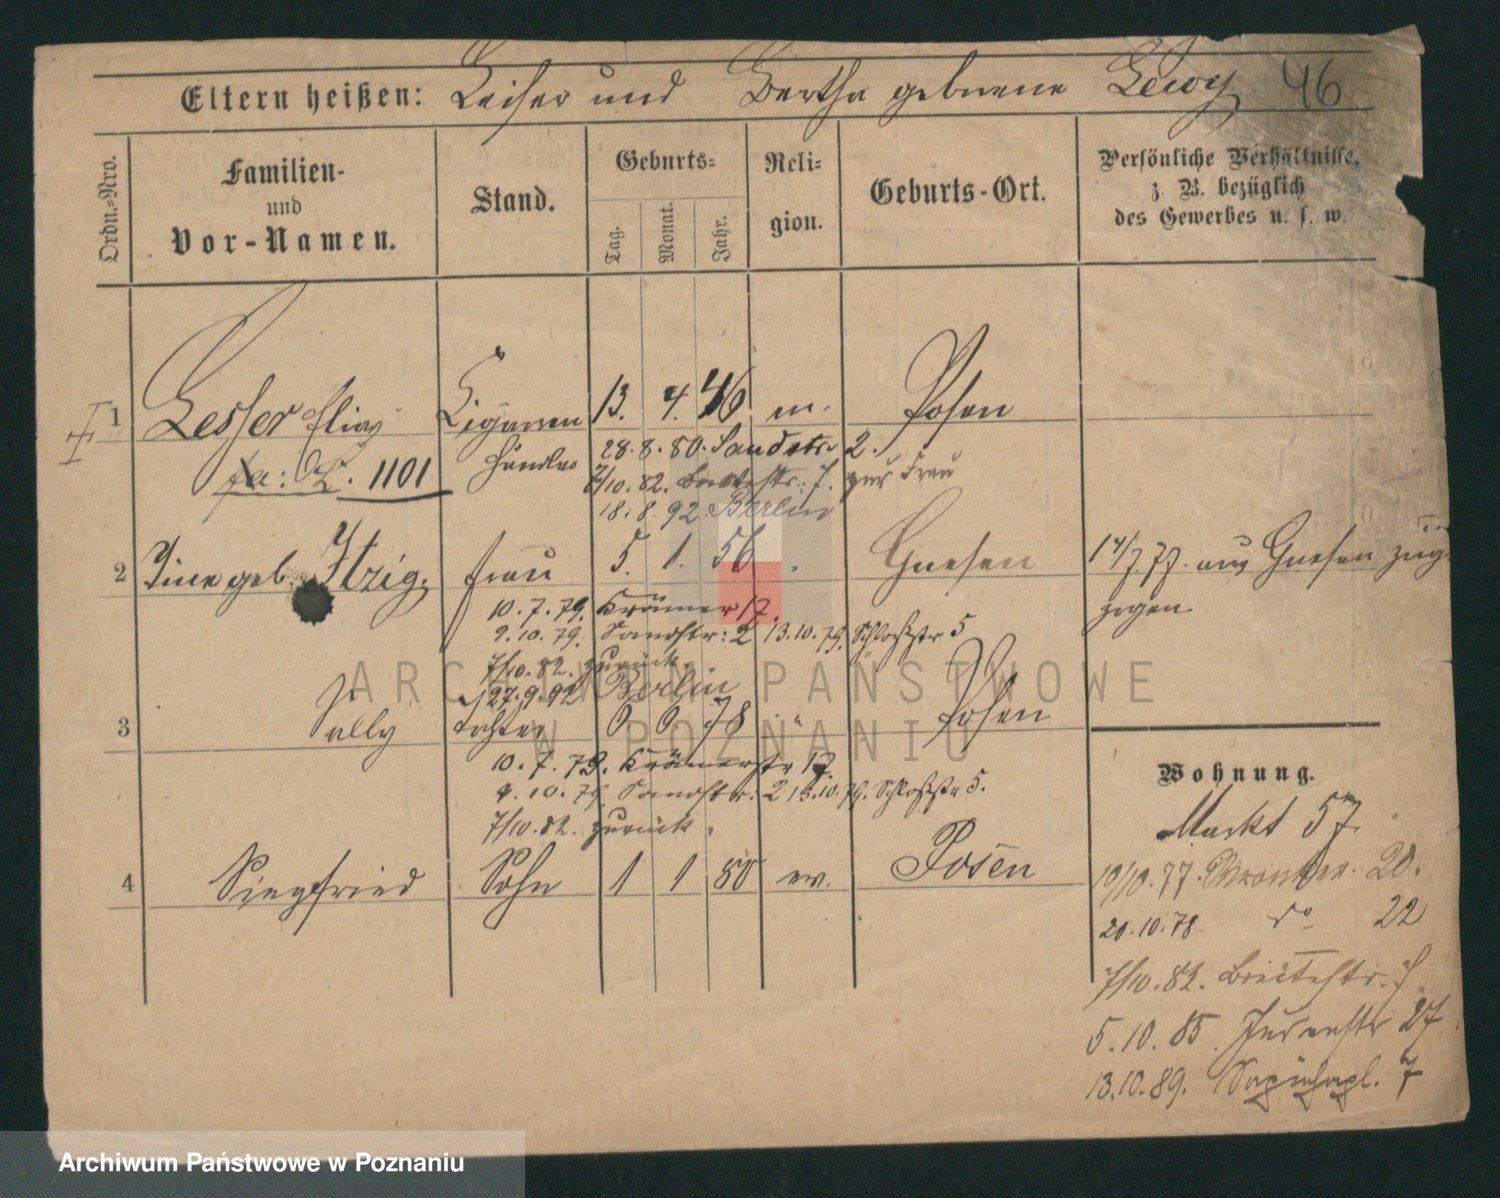 Eltern heißen: Leiser und Bertha geborene Lewy 46
Ordn.=Nro.
Familien-
und
Vor-Namen.
Stand.
Geburts=
Tag. Monat. Jahr.
Reli=
gion.
Geburts-Ort.
Persönliche Verhältnisse,
z. B. bezüglich
des Gewerbes u. s. w.
1 Lesser Elias Cigarren 13. 4. 46 m. Posen
fa: L. 1101 Händler 28.8.80. Sandstr 2.
7/10.82. Breitestr. 7. zur Frau
18.8.92. Berlin
2 geb. Itzig. Frau 5. 1. 56 Gnesen 14/7.77. aus Gnesen zuge
zogen
10.7.79. Krämer 17.
9.10.79. Sandstr: 2 13.10.79. Schloßstr 5
7/10.82. zurück.
27.9.92 Berlin
3 Sally Tochter 6 6 78 " Posen
10.7.79. Krämerstr 17.
9.10.79. Sandstr. 2 13.10.79. Schloßstr 5.
7/10.82. zurück.
4 Siegfried Sohn 1 1 80 Posen
Wohnung.
Markt 57.
10/10.77. 20.
20.10.78. do 22
7/10.82. Breitestr. 7.
5.10.85. Judenstr 27.
13.10.89. Sapiehapl. 7
ARCHIWUM PAŃSTWOWE
W POZNANIU
Archiwum Państwowe w Poznaniu